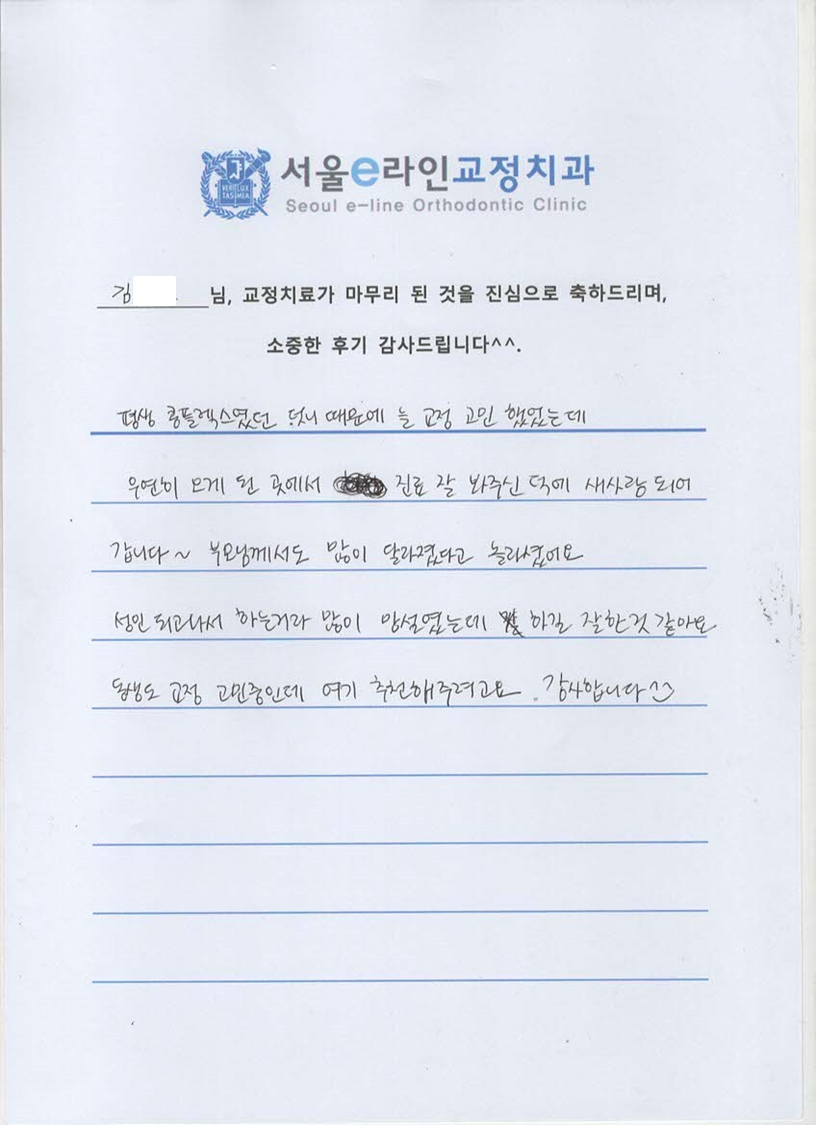 VERI LUX
TAS MEA
서울e라인교정치과
Seoul e-line Orthodontic Clinic
김 님, 교정치료가 마무리 된 것을 진심으로 축하드리며,
소중한 후기 감사드립니다^^.
평생 콤플렉스였던 덧니 때문에 늘 교정 고민 했었는데
우연히 오게 된 곳에서 진료 잘 봐주신 덕에 새사람 되어
갑니다~ 부모님께서도 많이 달라졌다고 놀라셨어요
성인 되고나서 하는거라 많이 망설였는데 하길 잘한것 같아요
동생도 교정 고민중인데 여기 추천해주려고요. 감사합니다^^